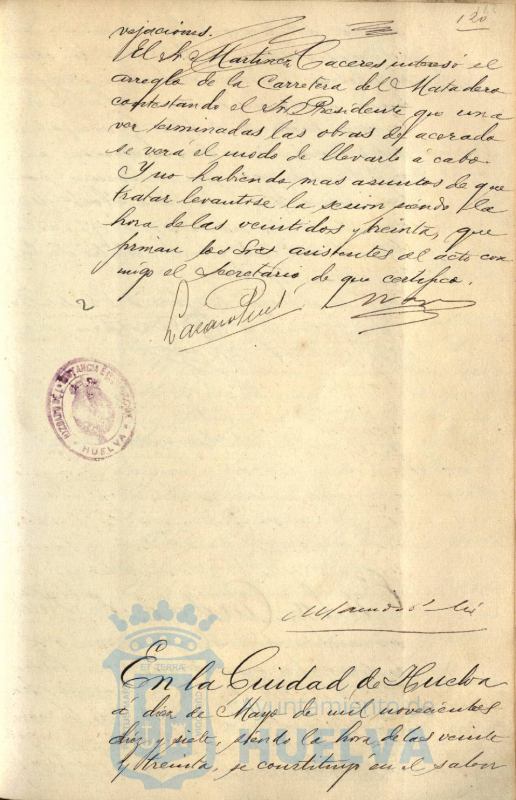 120
vejaciones.
El Sr. Martinez Caceres interesó el
arreglo de la Carretera del Matadero
contestando el Sr. Presidente que una
vez terminadas las obras de acerado
se verá el modo de llevarlo á cabo.
Y no habiendo mas asuntos de que
tratar levantóse la sesion siendo la
hora de las veintidos y treinta, que
firman los Sres asistentes al acto con
migo el Secretario de que certifico.
2
JUZGADO DE 1ª INSTANCIA E INSTRUCCION
HUELVA
En la Ciudad de Huelva
a diez de Mayo de mil novecientos
diez y siete, siendo la hora de las veinte
y treinta, se constituyó en el salon
ET TERRÆ
Ayuntamiento de
HUELVA